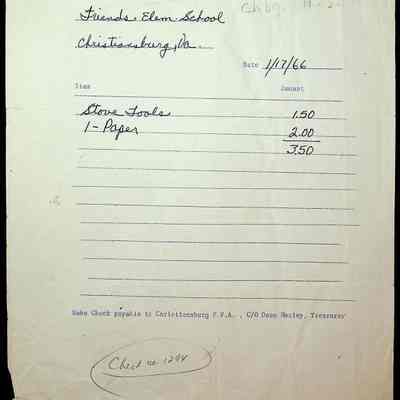 Friends Elem. School
Christiansburg, Va.
Date 1/17/66
Item Amount
Stove Tools 1.50
1 - Paper 2.00
3.50
Make Check payable to Christiansburg F.F.A. , C/O Dean Treasurer
Check no. 1294